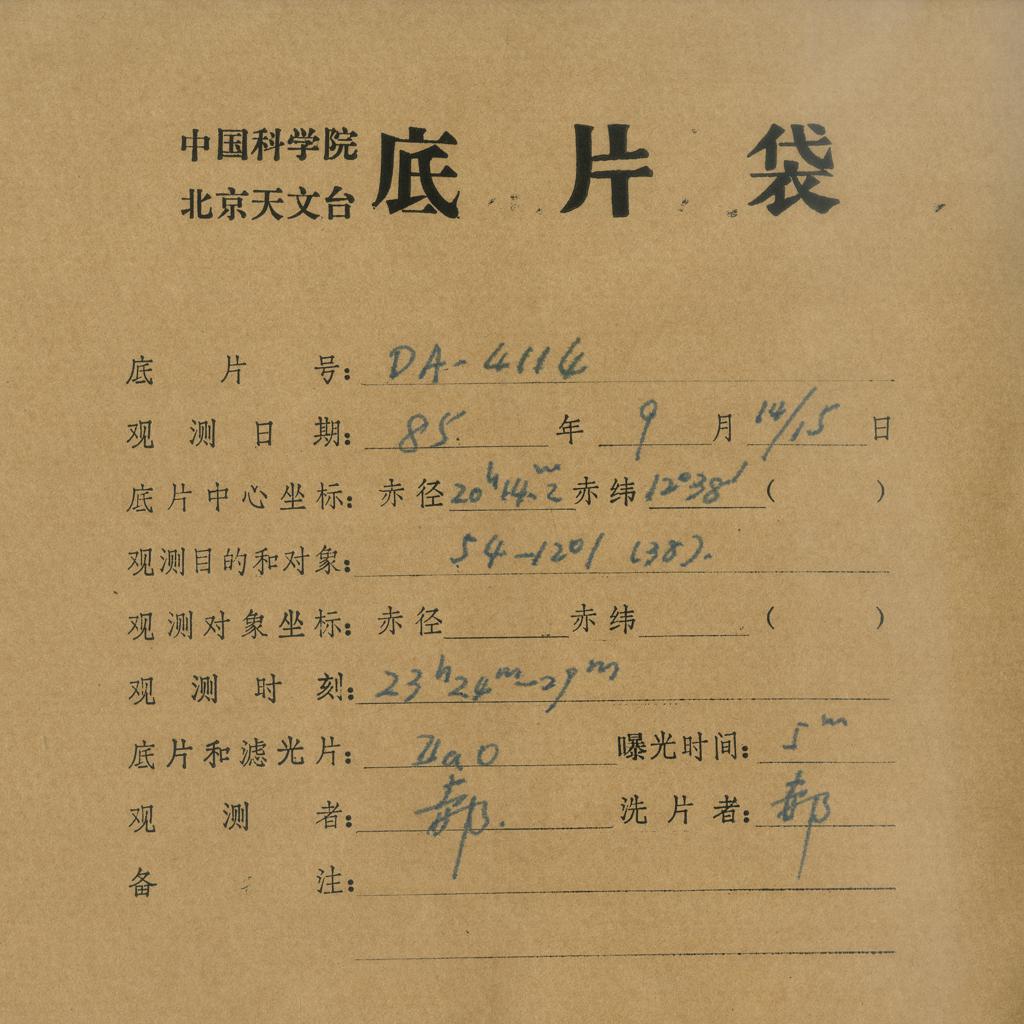 中国科学院
北京天文台
底片袋
底片号: DA-4114
观测日期: 85年9月14/15日
底片中心坐标: 赤径20h14m.2赤纬12°38′( )
观测目的和对象: 54-1201 (38).
观测对象坐标: 赤径 赤纬 ( )
观测时刻: 23h24m-29m
底片和滤光片: IIaO 曝光时间: 5m
观测者: 郝. 洗片者: 郝
备注: